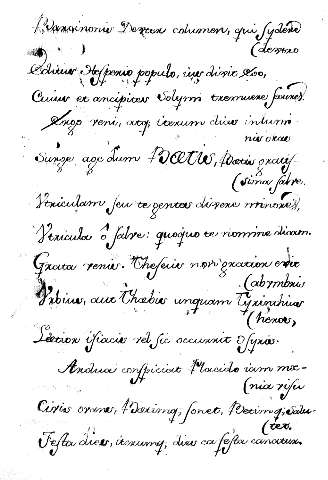 Barcinonis Dextra columen, qui sydere
(dextro
Editus Hesperio populo, ius dixit Eoo,
Cuius et ancipites Solymi tremuere secures.
Ergo veni, atq, iterum dias in lumi-
nis oras
Surge age dum Baetis, Baetis gratis-
(sima salve.
Utriculam seu te gentes dixere minores,
Utricula ô salve: quoquo te nomine dicam.
Grata venis. Theseia non gratior exit
(ab umbris
Urbius, aut Thaebis unquam Tyrinthius
(heros,
Laetior isiacis vel sic occurrit Osyris.
Ardua conspiciat Placido iam mae-
(nia risu
Civis ovans, Baetimq, sonet, Baetimq, salu-
(tet.
Festa dies, iterumq, dies ea festa canatur.